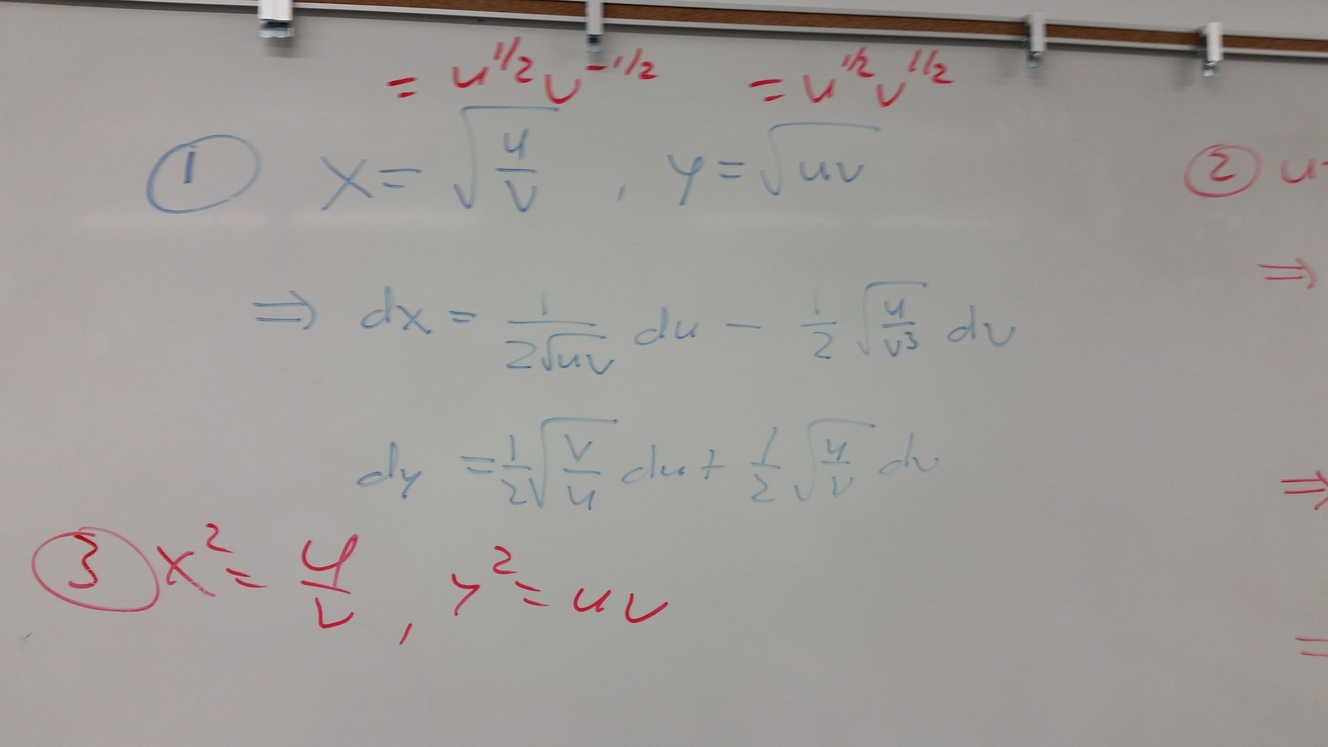 = u^{1/2} v^{-1/2} = u^{1/2} v^{1/2}
① x = √(u/v) , y = √(uv)
② u
⇒ dx = 1/(2√(uv)) du − 1/2 √(u/v³) dv
⇒
dy = 1/2 √(v/u) du + 1/2 √(u/v) dv
⇒
③ x² = u/v , y² = uv
=